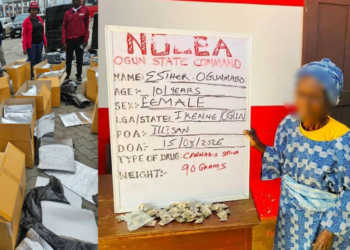 NDLEA
OGUN STATE COMMAND
NAME: ESTHER OGUNMABO
AGE: 101 YEARS
SEX: FEMALE
LGA/STATE: IKENNE OGUN
P.O.A: ILISAN
D.O.A: 15/08/2025
TYPE OF DRUG: CANNABIS SATIVA
WEIGHT: 90 GRAMS